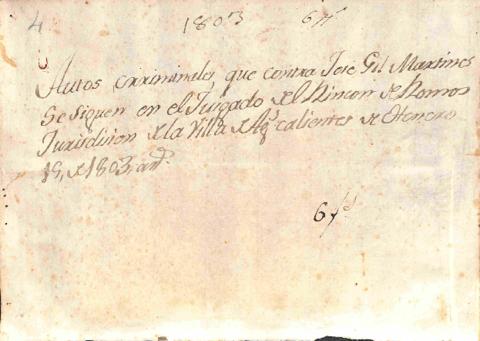 4 1803 6 f^s
Autos criminales que contra Jose Gil Martines
Se siguen en el Juzgado del Rincon de Romos
Jurisdision de la Villa de Ag^s calientes de Henero
18, de 1803, a^d.
6 f^s